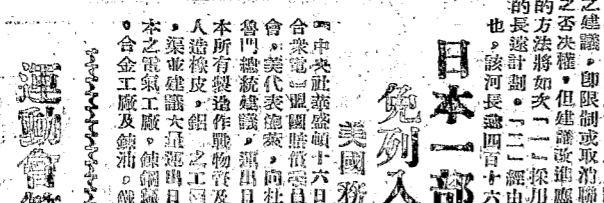 之建議，卽限制或取消聯
之否决權，但建議改進應
的方法將如次「一」採用
的長遠計劃。「三」經由
也，該河長逾四百十六
日本一部
免列入
美國務
【中央社華盛頓十六日
合衆電】盟國賠償委員
會，美代表鮑萊，向杜
魯門總統建議，運出日
本所有製造作戰物資及
人造橡皮，鋁之工
，渠並建議大量運出日
本之電氣工廠，鍊鋼
。合金工廠及鍊油，
運動會